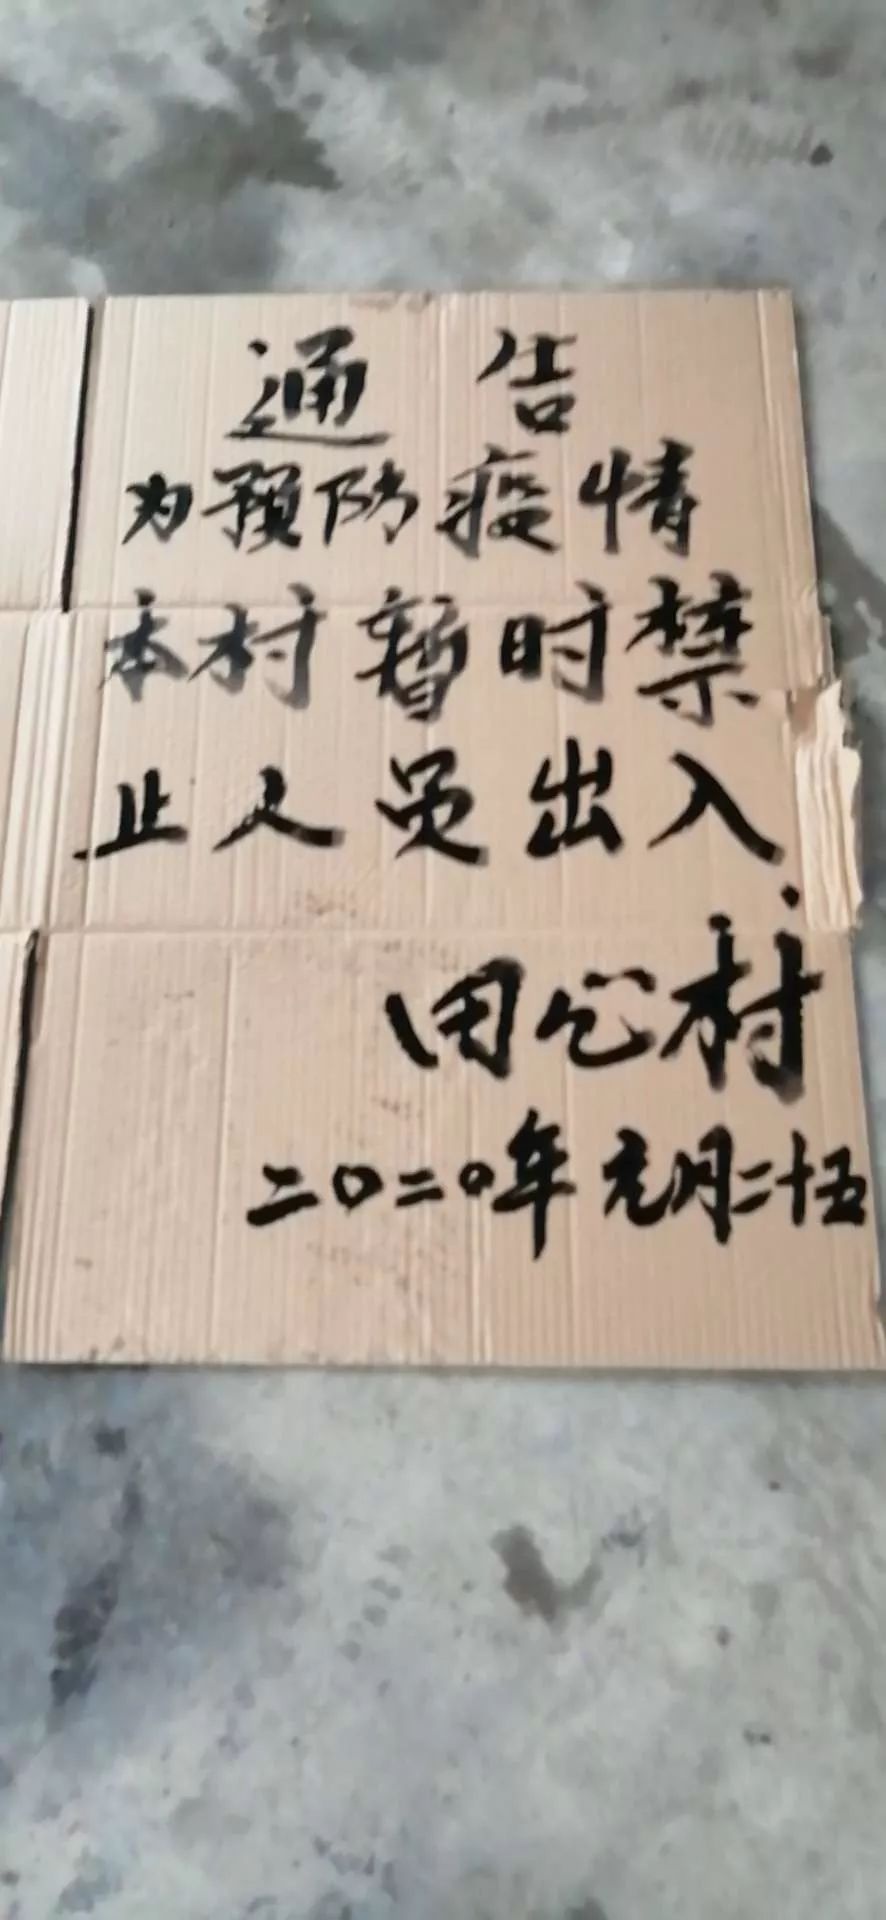 通告
为预防疫情
本村暂时禁
止人员出入
田心村
二〇二〇年元月二十五